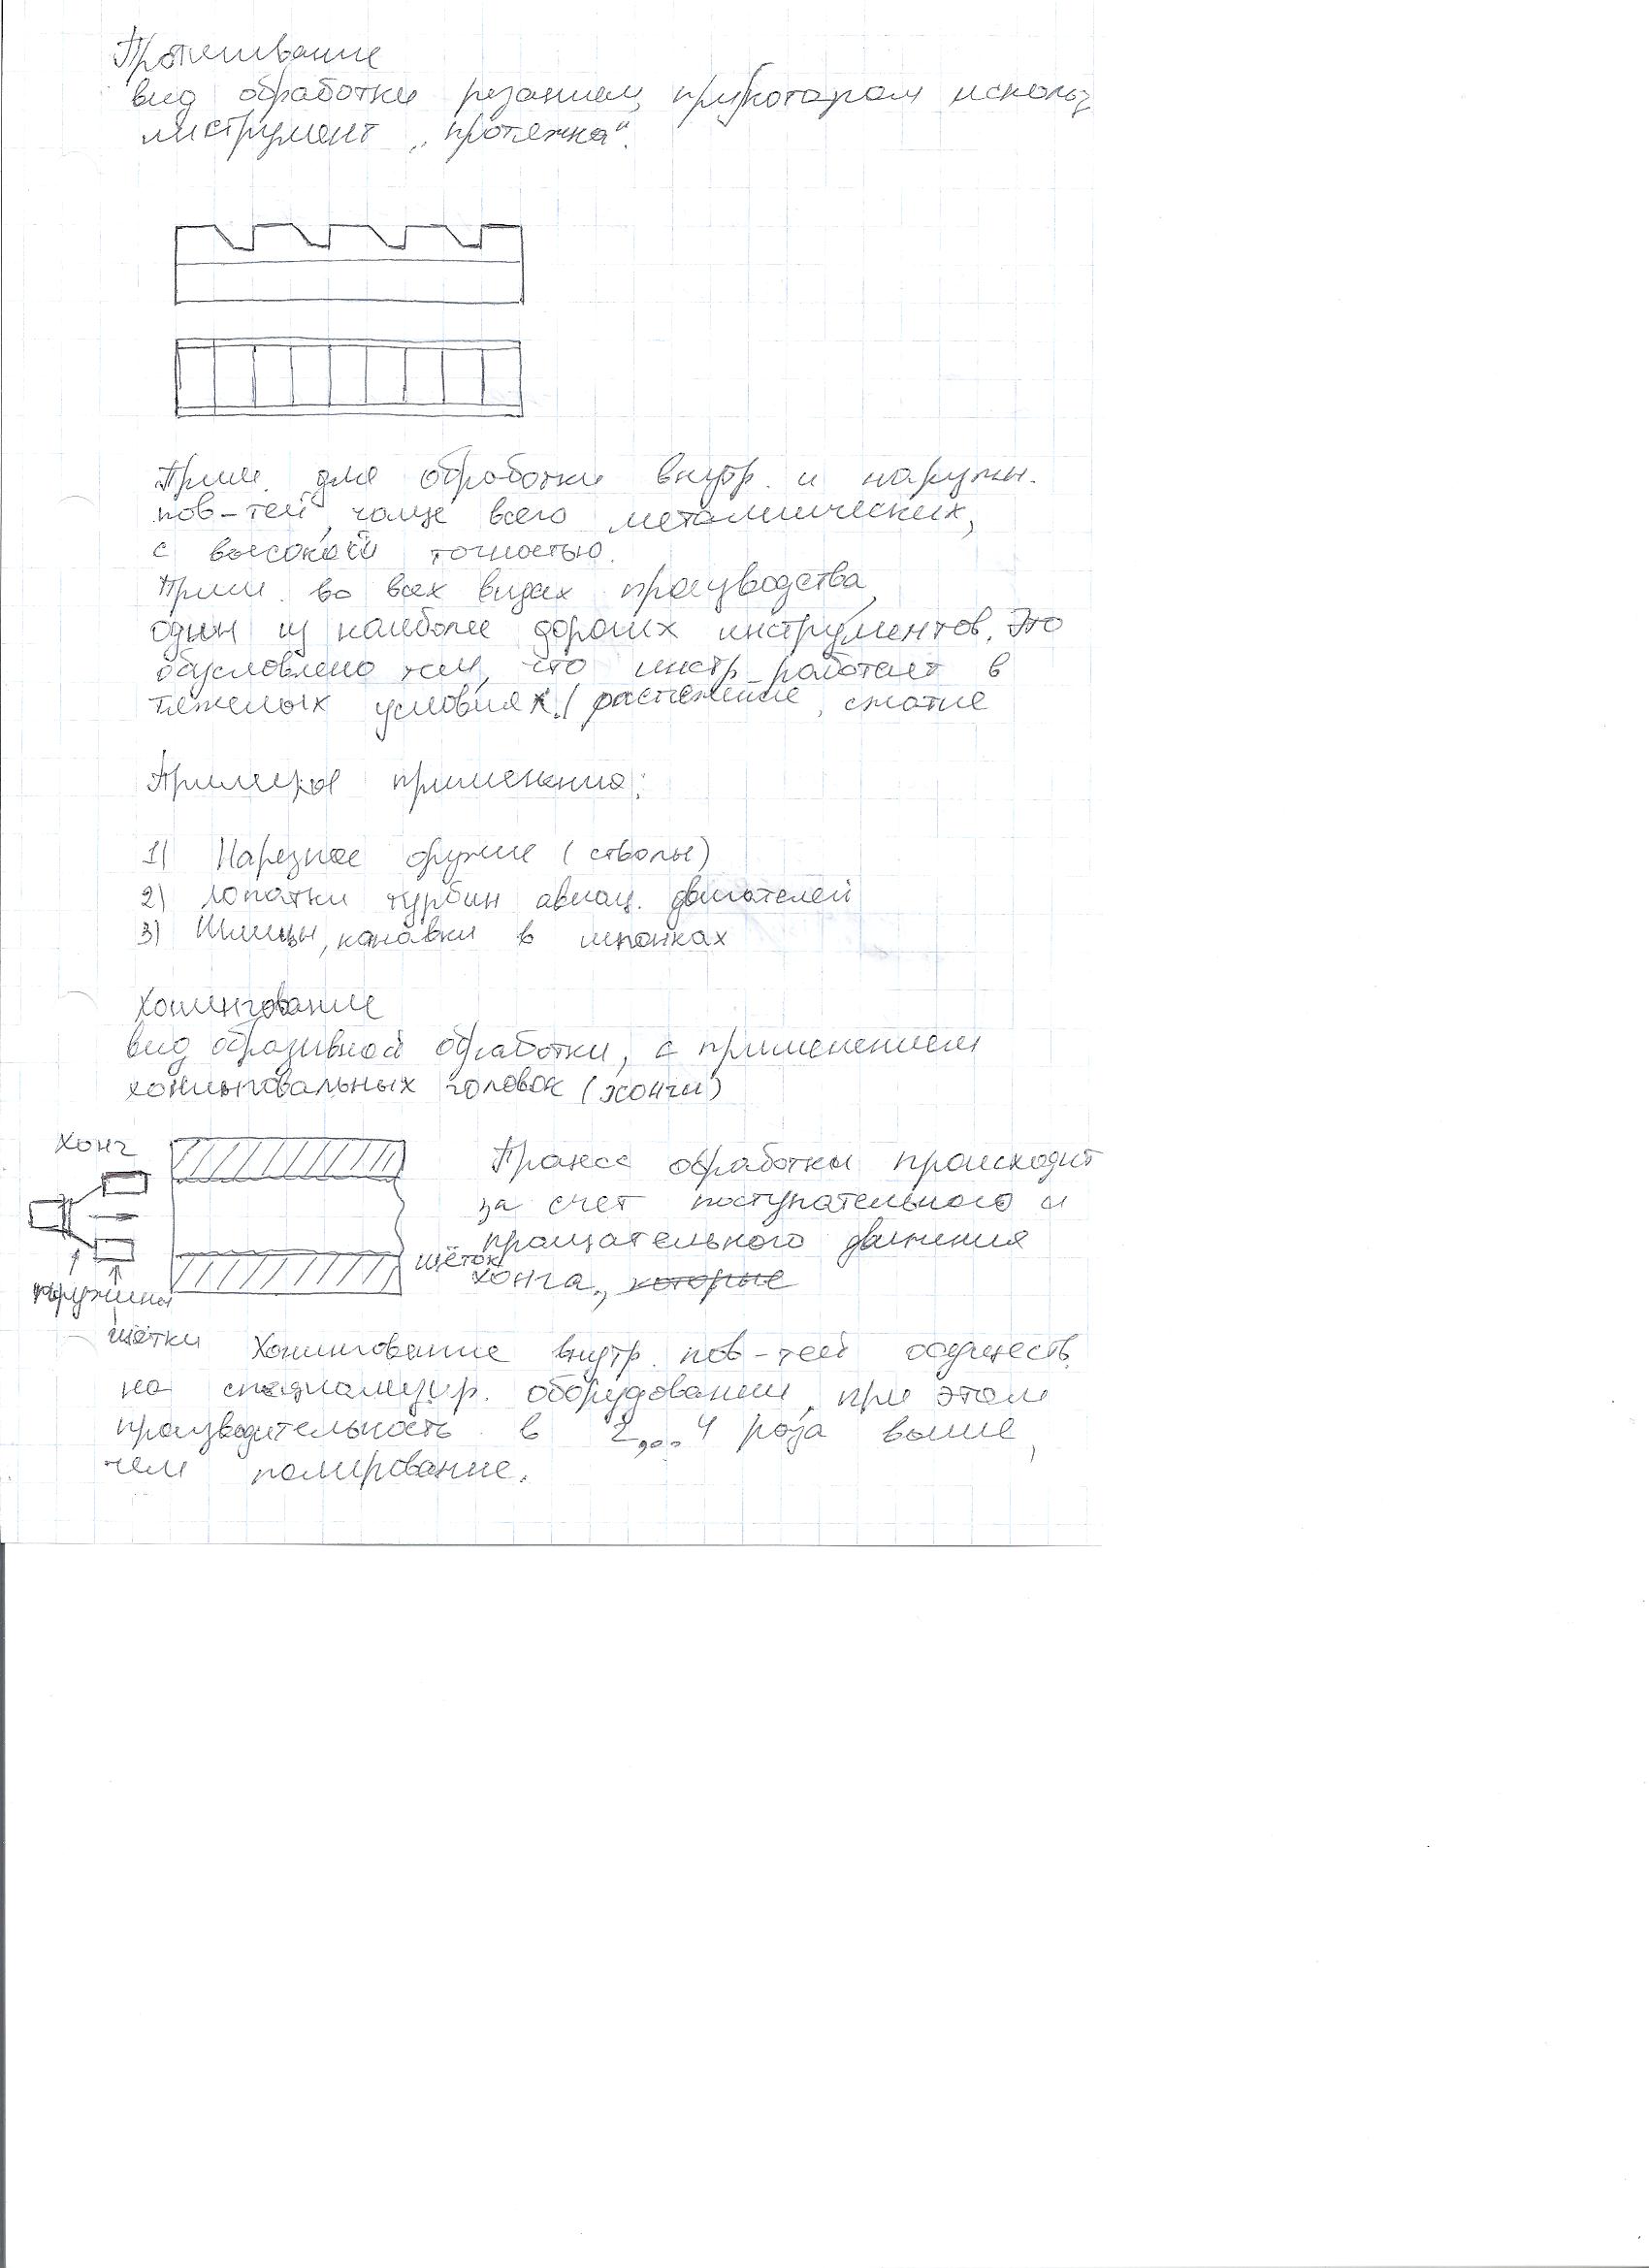 Протягивание
вид обработки резанием, при котором использ
инструмент „протяжка“.
Прим. для обработки внутр. и наружн.
пов-тей, чаще всего металлических,
с высокой точностью.
Прим. во всех видах производства,
один из наиболее дорогих инструментов. Это
обусловлено тем, что инстр. работает в
тяжелых условиях. / растяжение, сжатие
Примеры применения:
1) Нарезное оружие (стволы)
2) Лопатки турбин авиац. двигателей
3) Шлицы, канавки в шпонках
Хонингование
вид образивной обработки, с применением
хонинговальных головок (хонги)
Хонг
Процесс обработки происходит
за счет поступательного и
вращательного движения
щёток
хонга., которые
пружина
щётки
Хонингование внутр. пов-тей осуществ.
на специализир. оборудовании, при этом
производительность в 2...4 раза выше,
чем полирование.